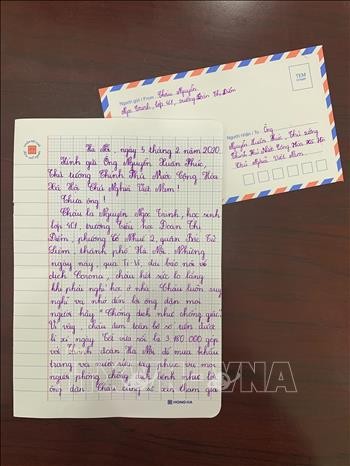 Người gửi / From: Cháu Nguyễn
Ngọc Trinh, lớp 4C1, trường Đoàn Thị Điểm
TEM
Người nhận / To: Ông
Nguyễn Xuân Phúc, Thủ tướng
Chính Phủ Nước Cộng Hòa Xã Hội
Chủ Nghĩa Việt Nam
Hà Nội, ngày 5 tháng 2 năm 2020.
Kính gửi Ông Nguyễn Xuân Phúc,
Thủ tướng Chính Phủ Nước Cộng Hòa
Xã Hội Chủ Nghĩa Việt Nam!
Thưa ông!
Cháu là Nguyễn Ngọc Trinh, học sinh
lớp 4C1, trường Tiểu học Đoàn Thị
Điểm, phường Cổ Nhuế 2, quận Bắc Từ
Liêm, thành phố Hà Nội. Những
ngày này, qua Ti Vi, đài báo nói về
dịch Corona, cháu hết sức lo lắng
khi phải nghỉ học ở nhà. Cháu luôn suy
nghĩ và nhớ đến lời ông dặn mọi
người hãy "Chống dịch như chống giặc".
Vì vậy, cháu đem toàn bộ số tiền được
lì xì ngày Tết vừa rồi là 3.180.000 gửi
với Thành đoàn Hà Nội để mua khẩu
trang và nước rửa tay phục vụ mọi
người phòng chống dịch bệnh như lời
ông dặn. Cháu cũng sẽ xin tham gia
HONG HA
TTXVN
VNA